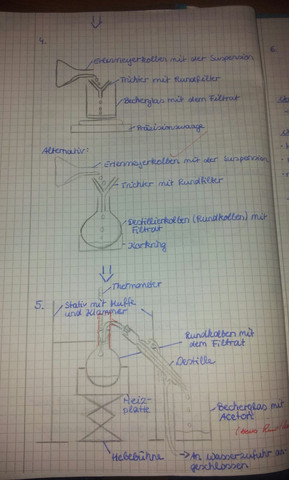 4.
Erlenmeyerkolben mit der Suspension
Trichter mit Rundfilter
Becherglas mit dem Filtrat
Präzisionswaage
6.
Alternativ:
Erlenmeyerkolben mit der Suspension
Trichter mit Rundfilter
Destillierkolben (Rundkolben) mit
Filtrat
Korkring
Thermometer
5.
Stativ mit Muffe
und Klammer
Rundkolben mit
dem Filtrat
Destille
Heiz-
platte
Becherglas mit
Aceton
Hebebühne
→ An Wasserzufuhr an-
geschlossen